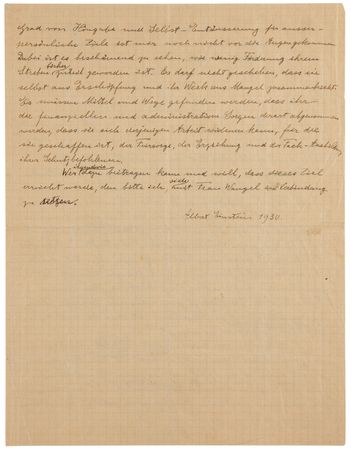 Grad von Hingabe und Selbst-Entäusserung für ausser-
persönliche Ziele ist mir noch nicht vor die Augen gekommen.
Dabei ist es beschämend zu sehen, wie wenig Förderung ihrem
Streben bisher zuteil geworden ist. Es darf nicht geschehen, dass sie
selbst aus Erschöpfung und ihr Werk aus Mangel zusammenbricht.
Es müssen Mittel und Wege gefunden werden, dass ihr
die finanziellen und administrativen Sorgen derart abgenommen
werden, dass sie sich derjenigen Arbeit widmen kann, für die
sie geschaffen ist, der Fürsorge, der Erziehung und der Fach-Ausbildung
ihrer Schutzbefohlenen.
Wer irgendwie dazu beitragen kann und will, dass dieses Ziel
erreicht werde, den bitte ich, sich mit Frau Wangel in Verbindung
zu setzen.
Albert Einstein 1930.